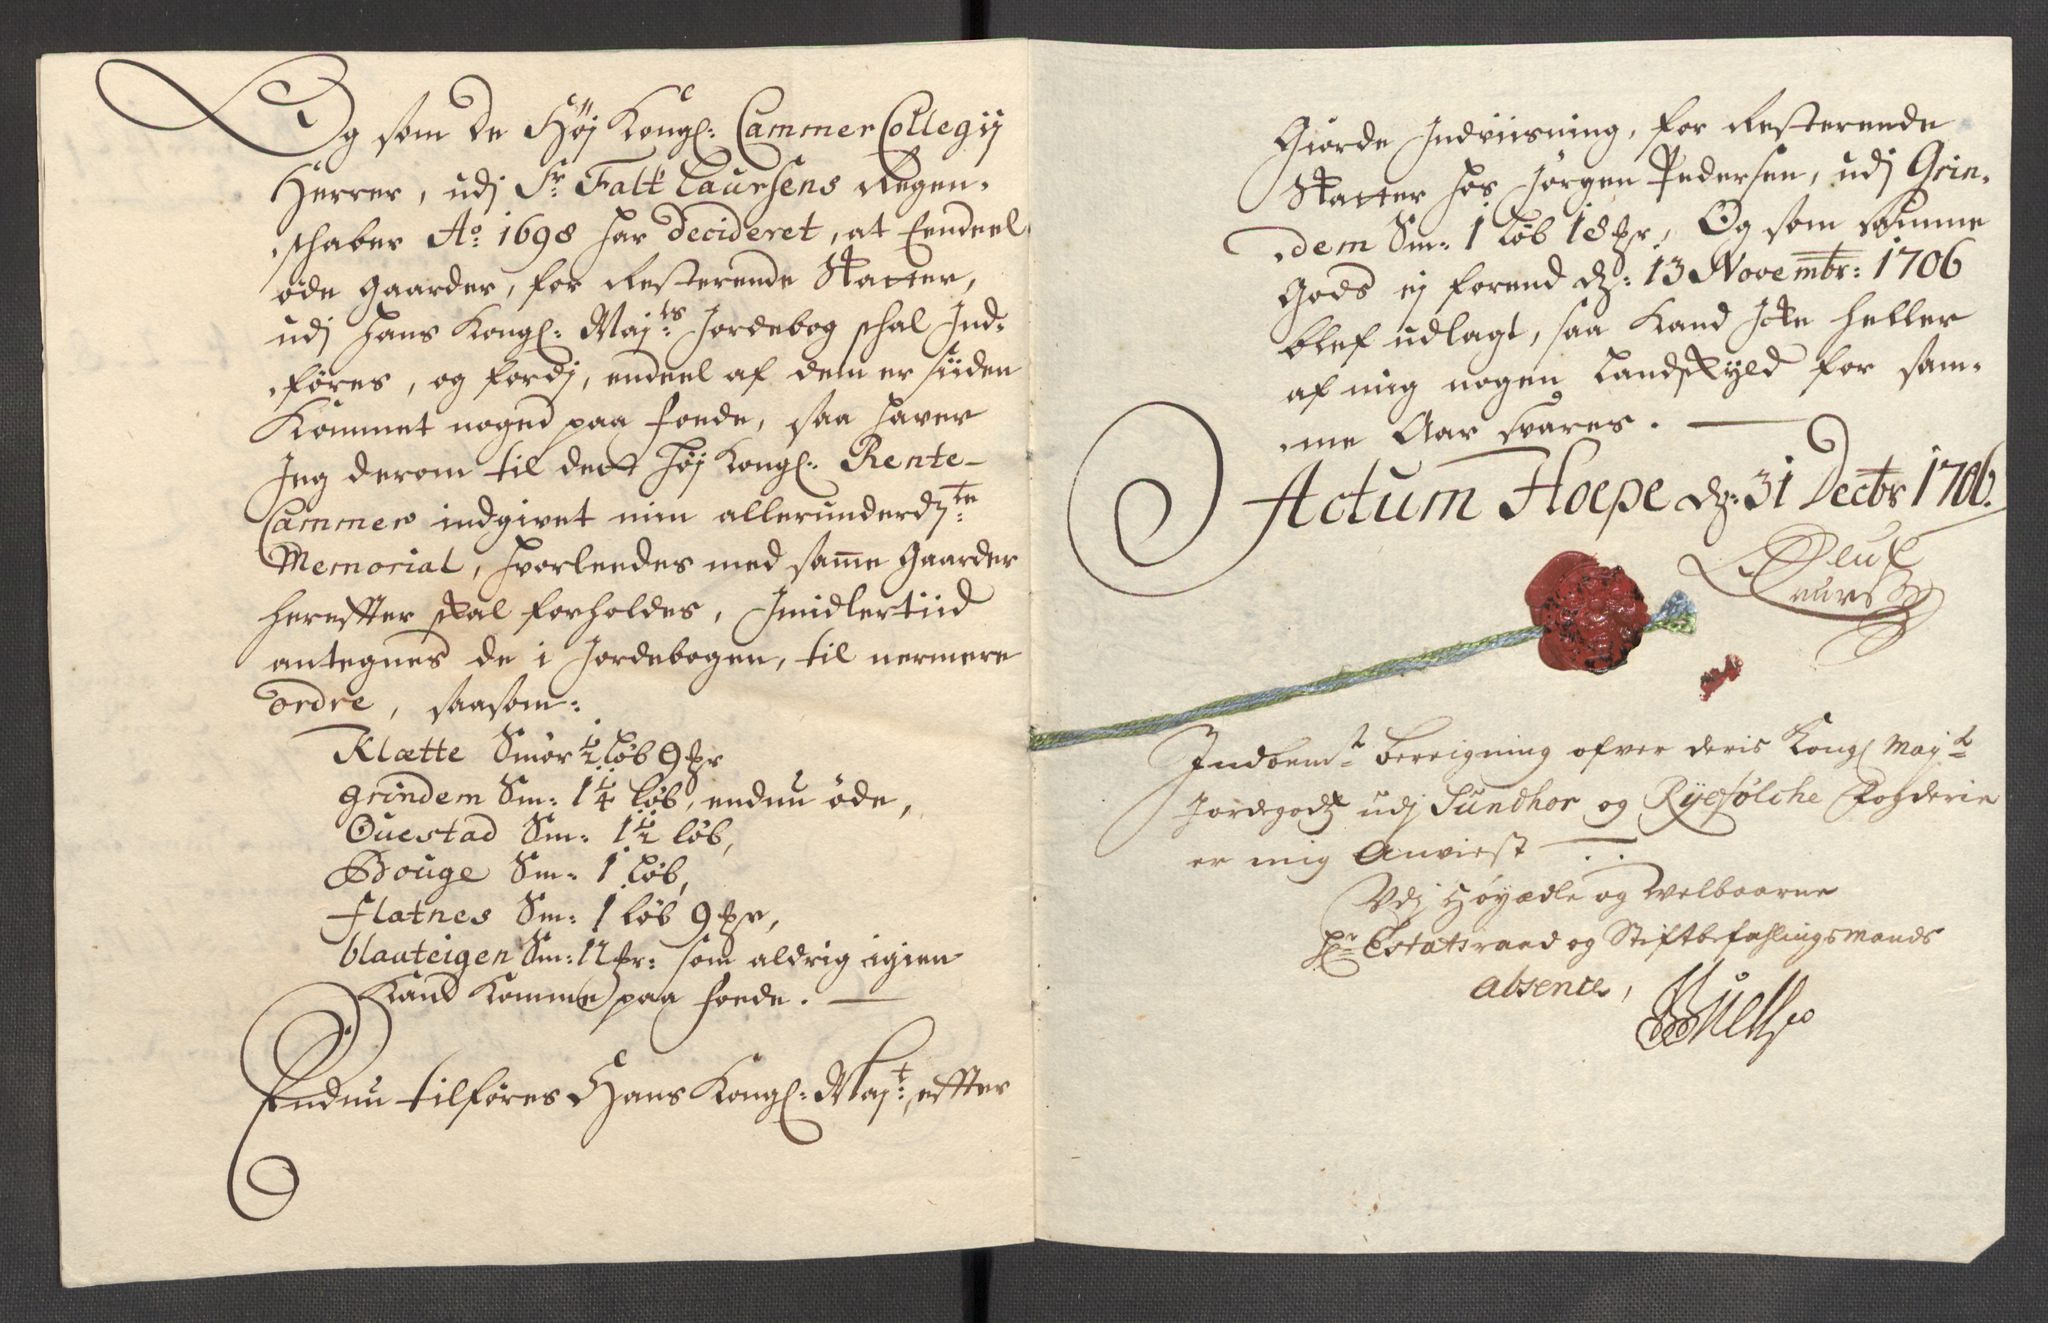 Og som de Høj Kongl: Cammer Collegij
Herrer, udj Sr. Falk Laursens Regen-
schaber Ao: 1698 har decideret, at Eendeel
øde gaarder, for Resterende Skatter,
udj Hans Kongl: Majts: Jordebog schal Ind-
føres, og fordj, endeel af dem er siiden
Kommet noged paa foede, saa haver
Jeg derom til dett høj Kongl: Rente-
Cammer indgivet min allerunderdste:
Memorial, hvorleedes med samme Gaarder
hereffter skal forholdes, Imidlertiid
antegnes de i Jordebogen, til nermere
ordre, saasom:
Klætte Smør ½ Løb 9 pr
grindem Sm: 1¼ Løb, endnu øde,
Ouestad Sm: 1½ Løb,
Bouge Sm: 1 Løb,
flatnes Sm: 1 Løb 9 pr,
blaateigen Sm: 12 pr: som aldrig igien
Kand Komme paa foede.
Endnu tilføres Hans Kongl: Majt:, effter
Giorde Indviisning, for Resterende
Skatter hos Jørgen Pedersen, udj Grin-
dem Sm: 1 Løb 18 pr, Og som samme
Gods ej forend d: 13 Novembr: 1706
blef udlagt, saa Kand Icke heller
af mig nogen Landskyld for sam-
me Aar svares.
Actum Hoepe d: 31 Decbr 1706.
Laurs
Indbemt: bereigning ofver deris Kongl Mayts
Jordegodtz udj Sundhor og Ryefølche Fogderie
er mig Anviest
Vdj Høyædle og Velbaarne
Hr Estatsraad og Stiftbefahlingsmands
absence,